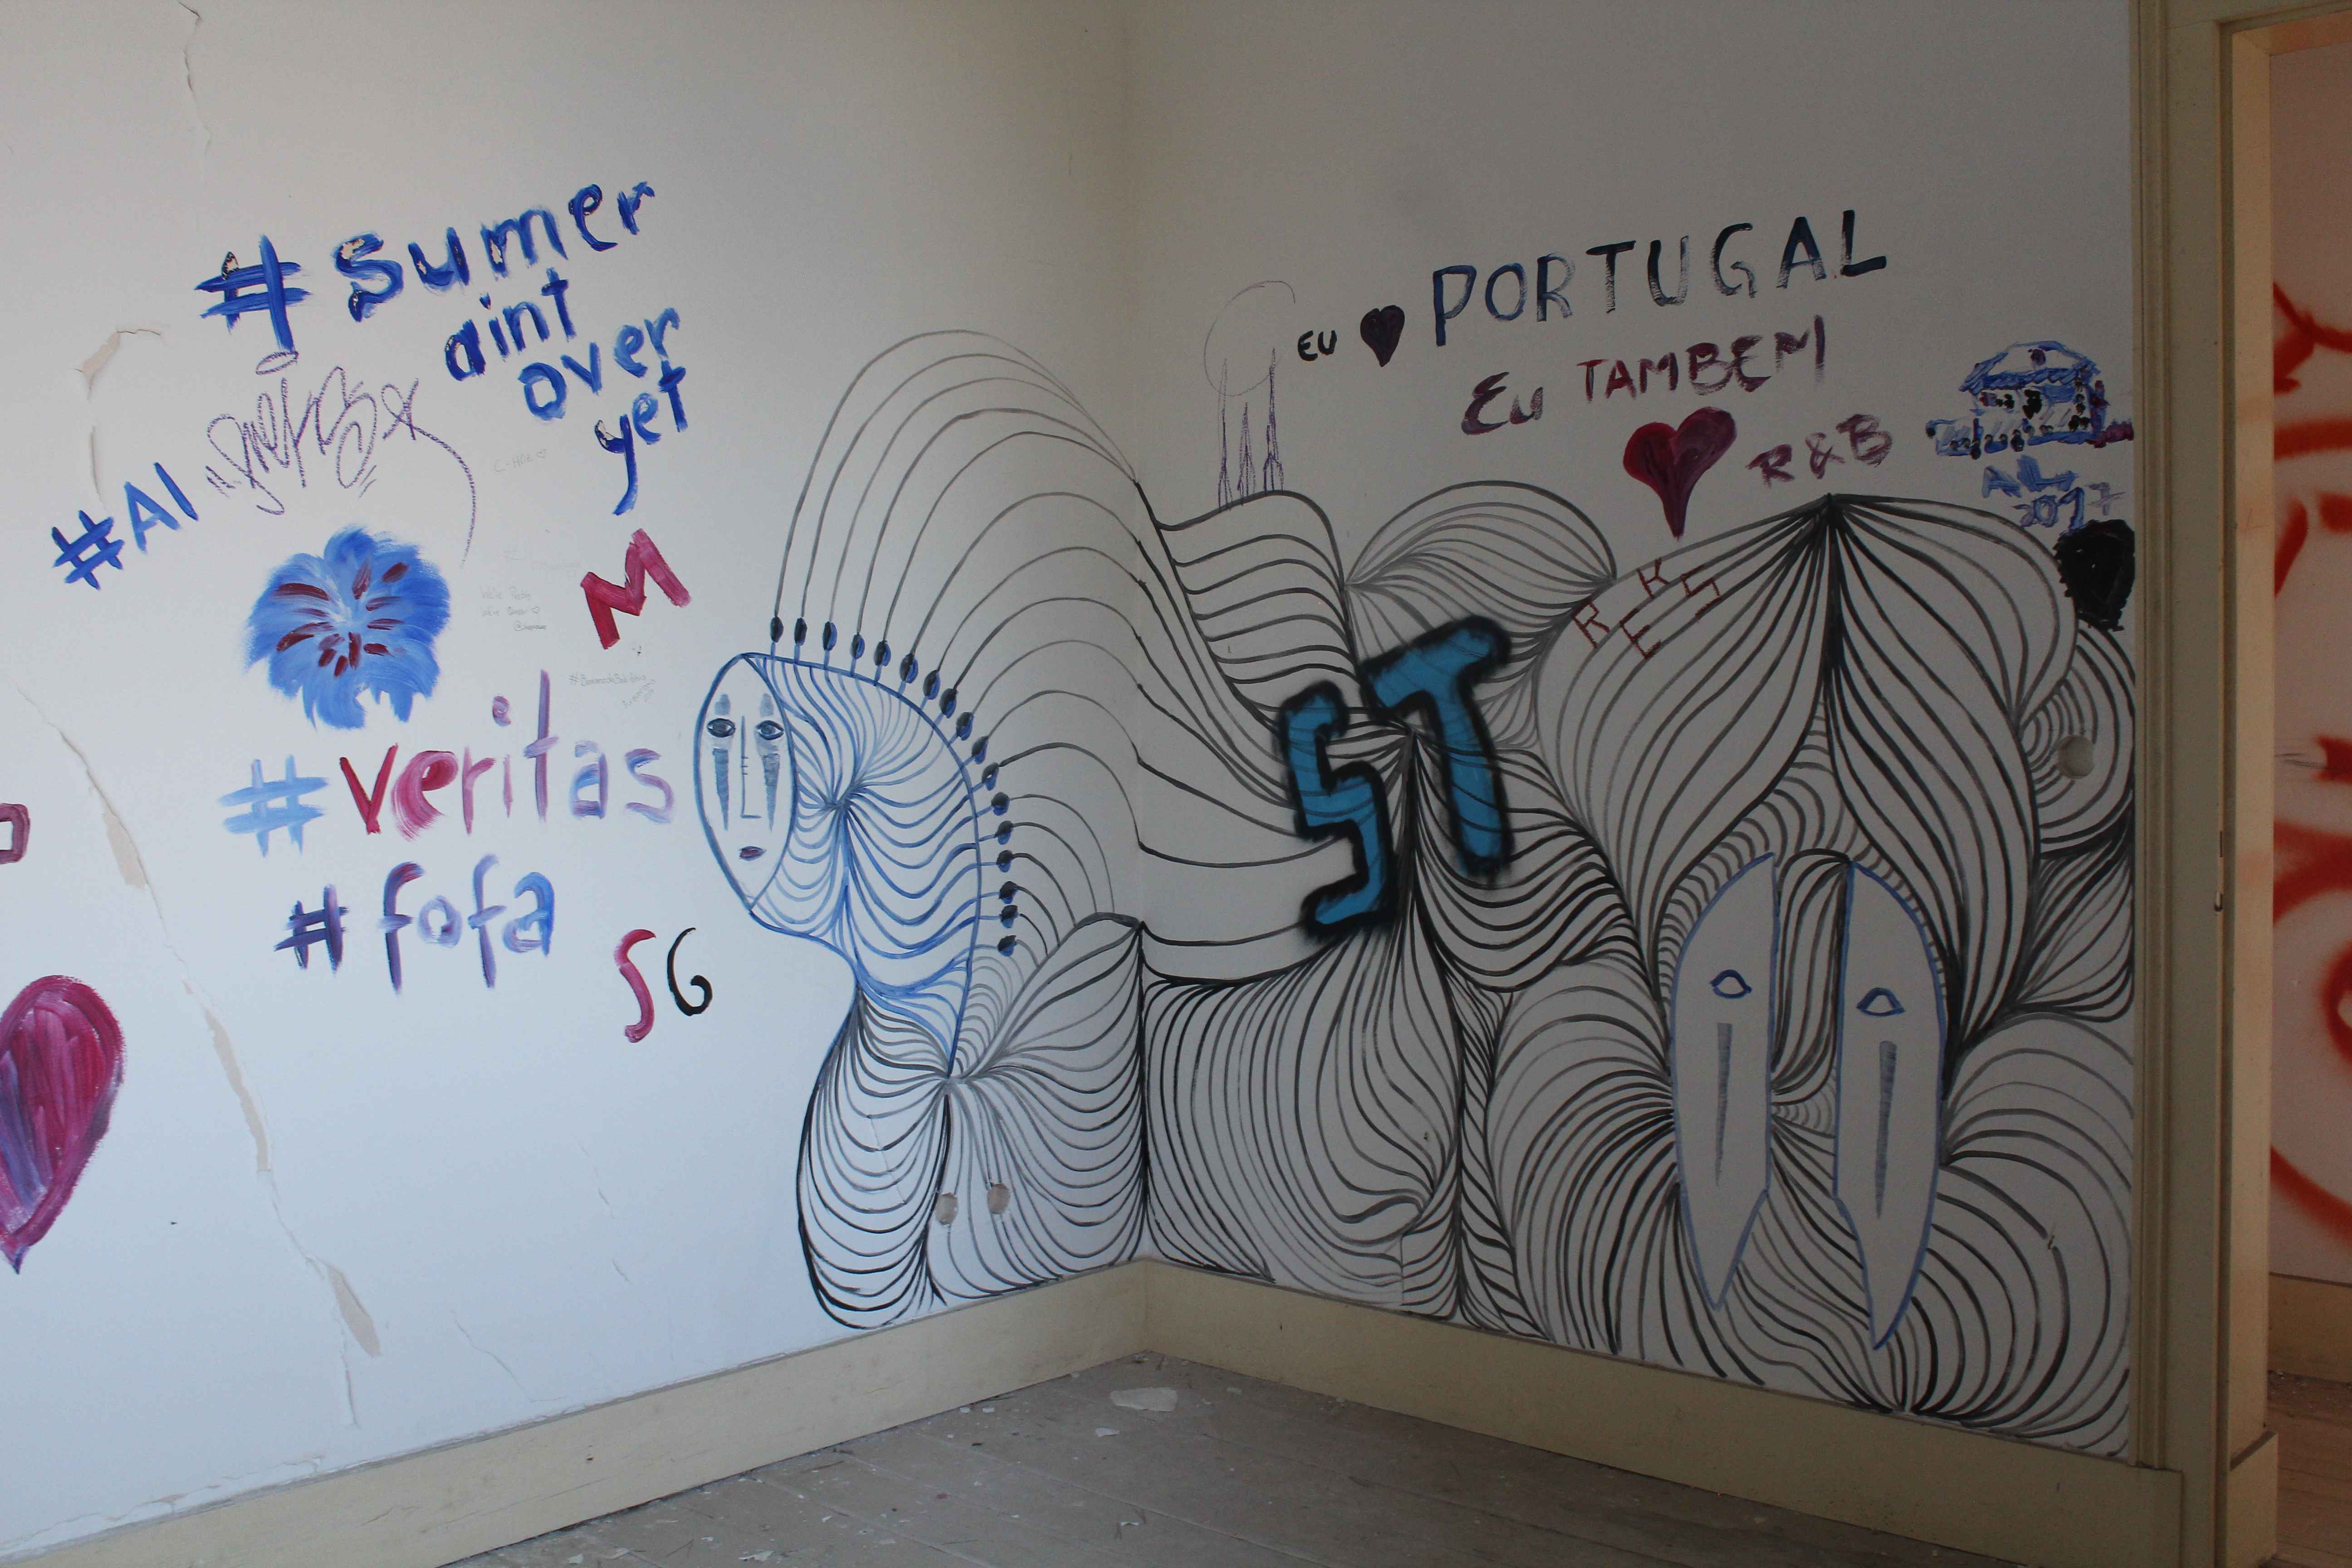 #sumer
aint
over
yet
#AI
M
#veritas
#fofa
SG
EU ♥ PORTUGAL
Eu TAMBEM
♥ R&B
AL
2017
REKS
ST